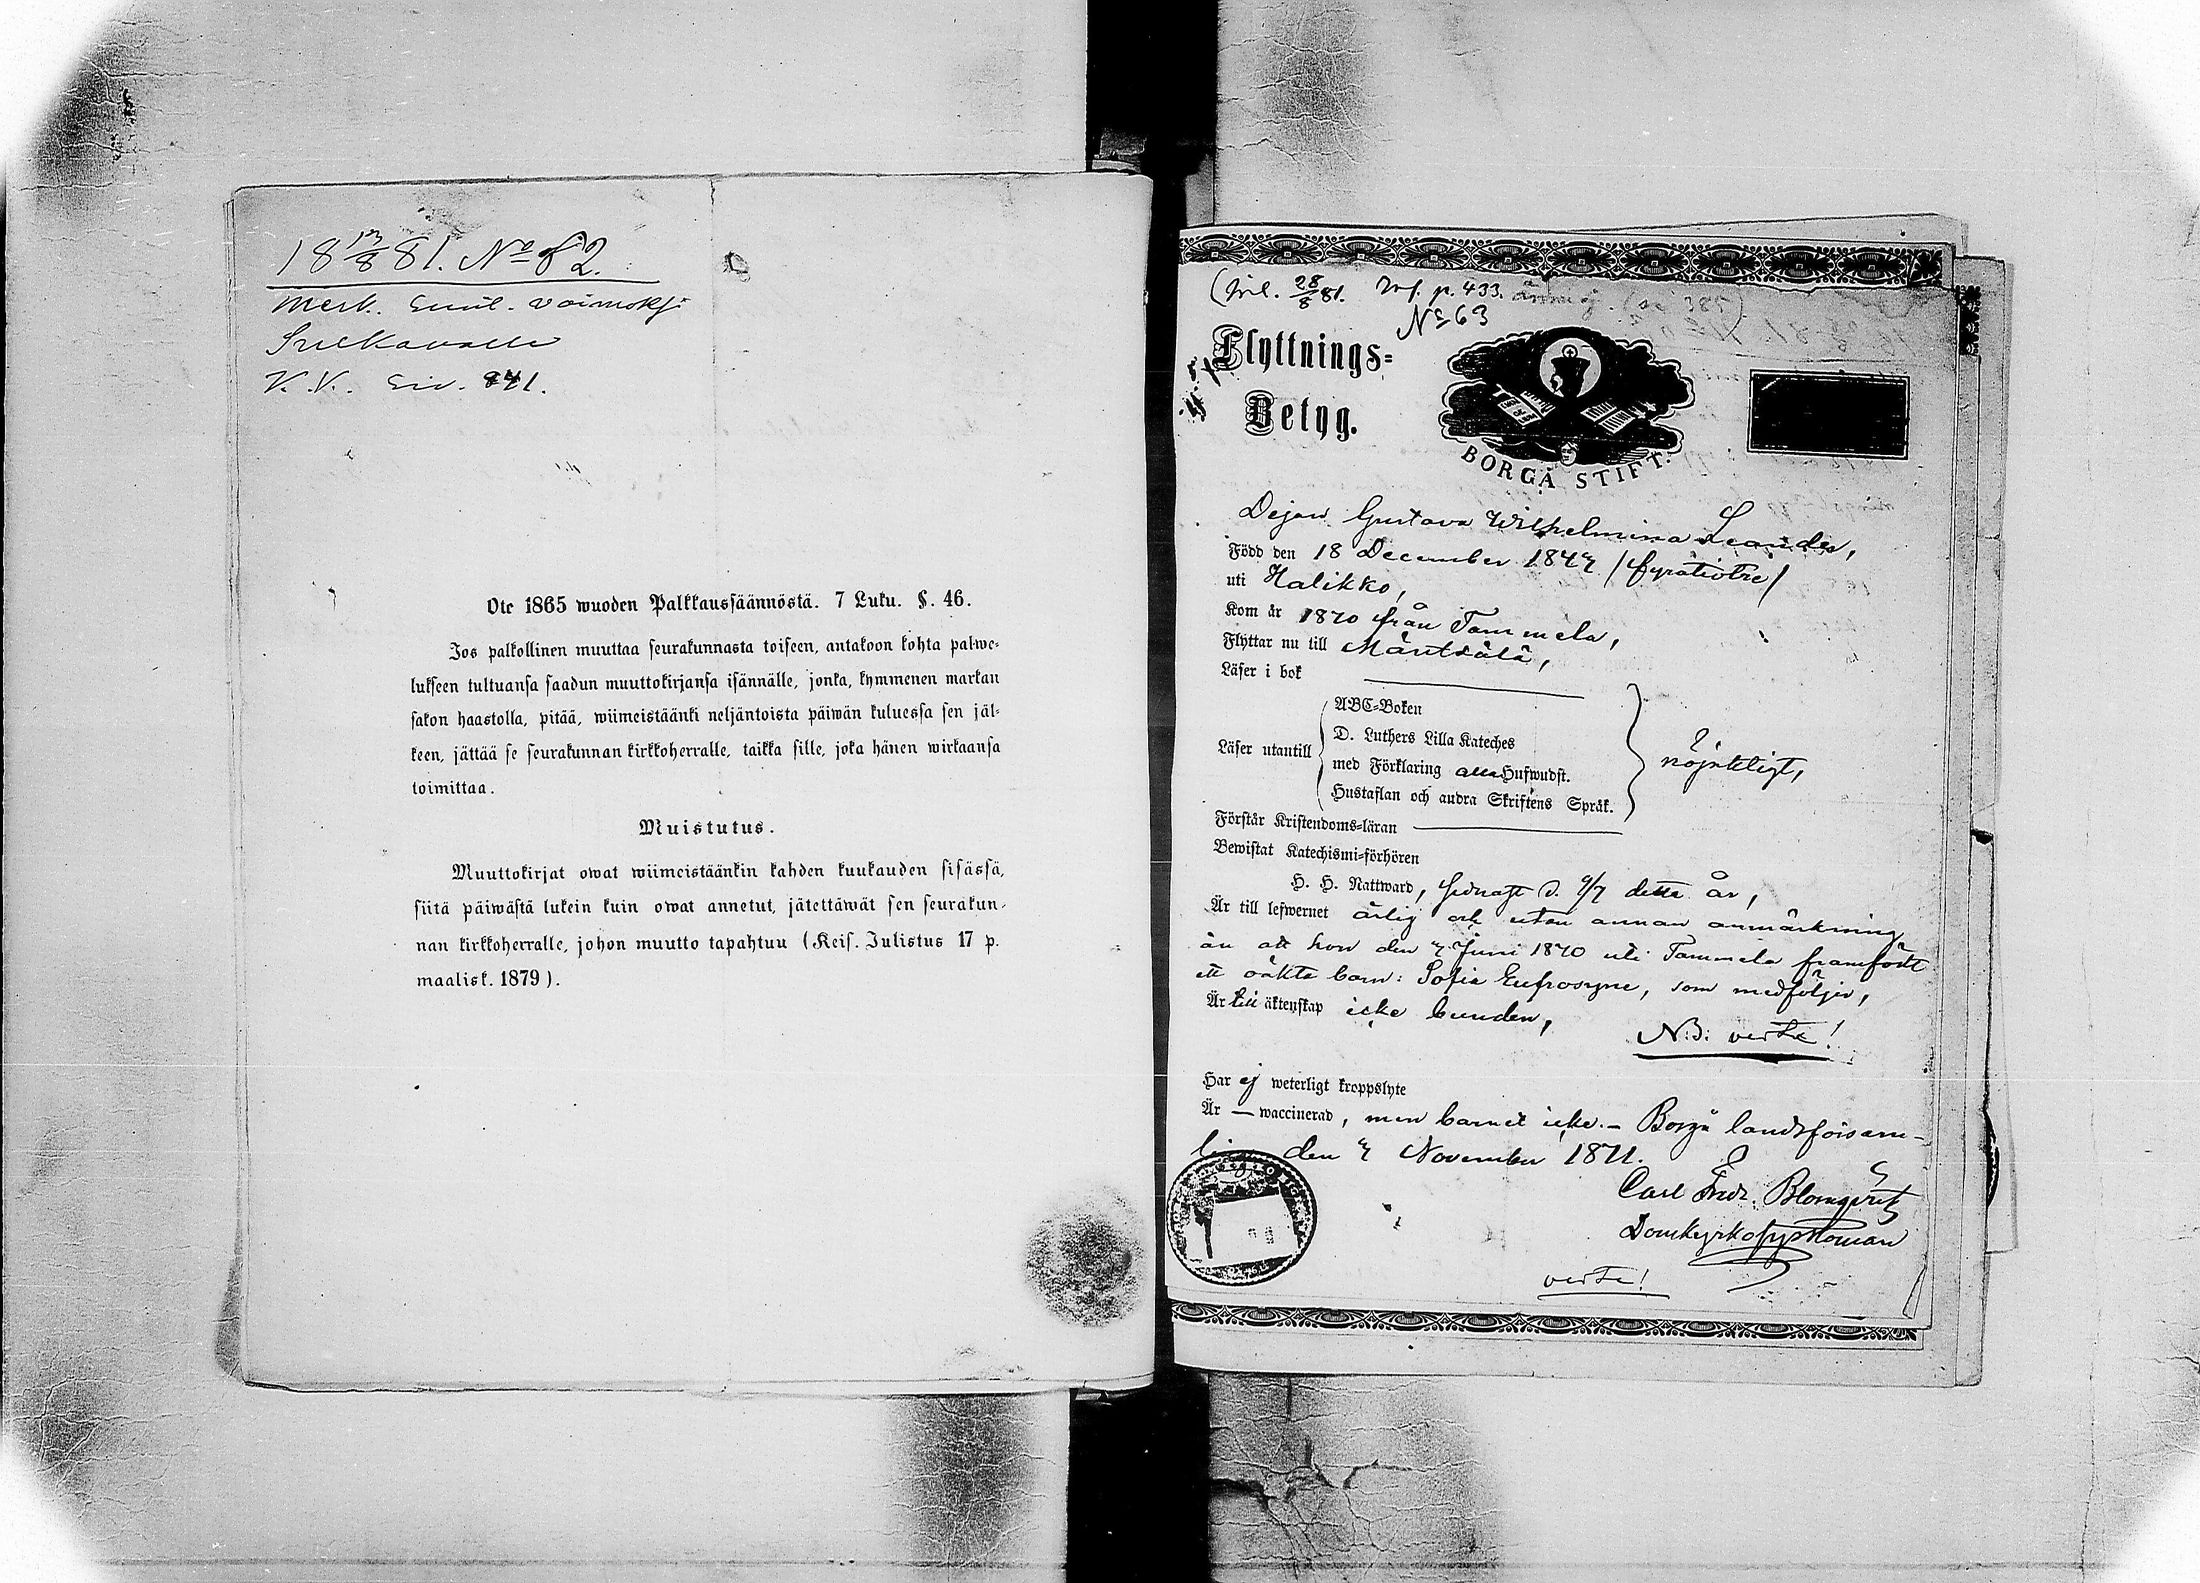 18 12/8 81. No 82.
merk. Emil. voimoksi
V. V. Siv. 841.
Ote 1865 wuoden Palkkaussäännöstä. 7 Luku. §. 46.
Jos palkollinen muuttaa seurakunnasta toiseen, antakoon kohta palwe-
lukseen tultuansa saadun muuttokirjansa isännälle, jonka, kymmenen markan
sakon haastolla, pitää, wiimeistäänki neljäntoista päiwän kuluessa sen jäl-
keen, jättää se seurakunnan kirkkoherralle, taikka sille, joka hänen wirkaansa
toimittaa.
Muistutus.
Muuttokirjat owat wiimeistäänkin kahden kuukauden sisässä,
siitä päiwästä lukein kuin owat annetut, jätettäwät sen seurakun-
nan kirkkoherralle, johon muutto tapahtuu (Keis. Julistus 17 p.
maalisk. 1879).
(Inl. 28/8 81. Inf. p. 433.
No 63
Flyttnings-
Betyg.
BORGÅ STIFT.
Dejan Gustava Wilhelmina Leander,
Född den 18 December 1847 /fyratiotre/
uti Halikko,
Kom år 1870 från Tammela,
Flyttar nu till Mäntsälä,
Läser i bok
Läser utantill
ABC-Boken
D. Luthers Lilla Kateches
med Förklaring alla Hufwudst.
Hustaflan och andra Skriftens Språk.
nöjaktigt,
Förstår Kristendoms-läran
Bewistat Katechismi-förhören
H. H. Nattward, senast d. 9/7 detta år,
Är till lefwernet ärlig och utan annan anmärkning
än att hon den 7 Juni 1870 uti Tammela framfödt
ett oäkta barn: Sofia Eufrosyne, som medföljer,
Är till äktenskap icke bunden,
N.B. verte!
Har ej weterligt kroppslyte
Är — waccinerad, men barnet icke. — Borgå landsförsam-
ling den 7 November 1871.
Carl Fredr. Blomqvist
Domkyrkosysloman
verte!